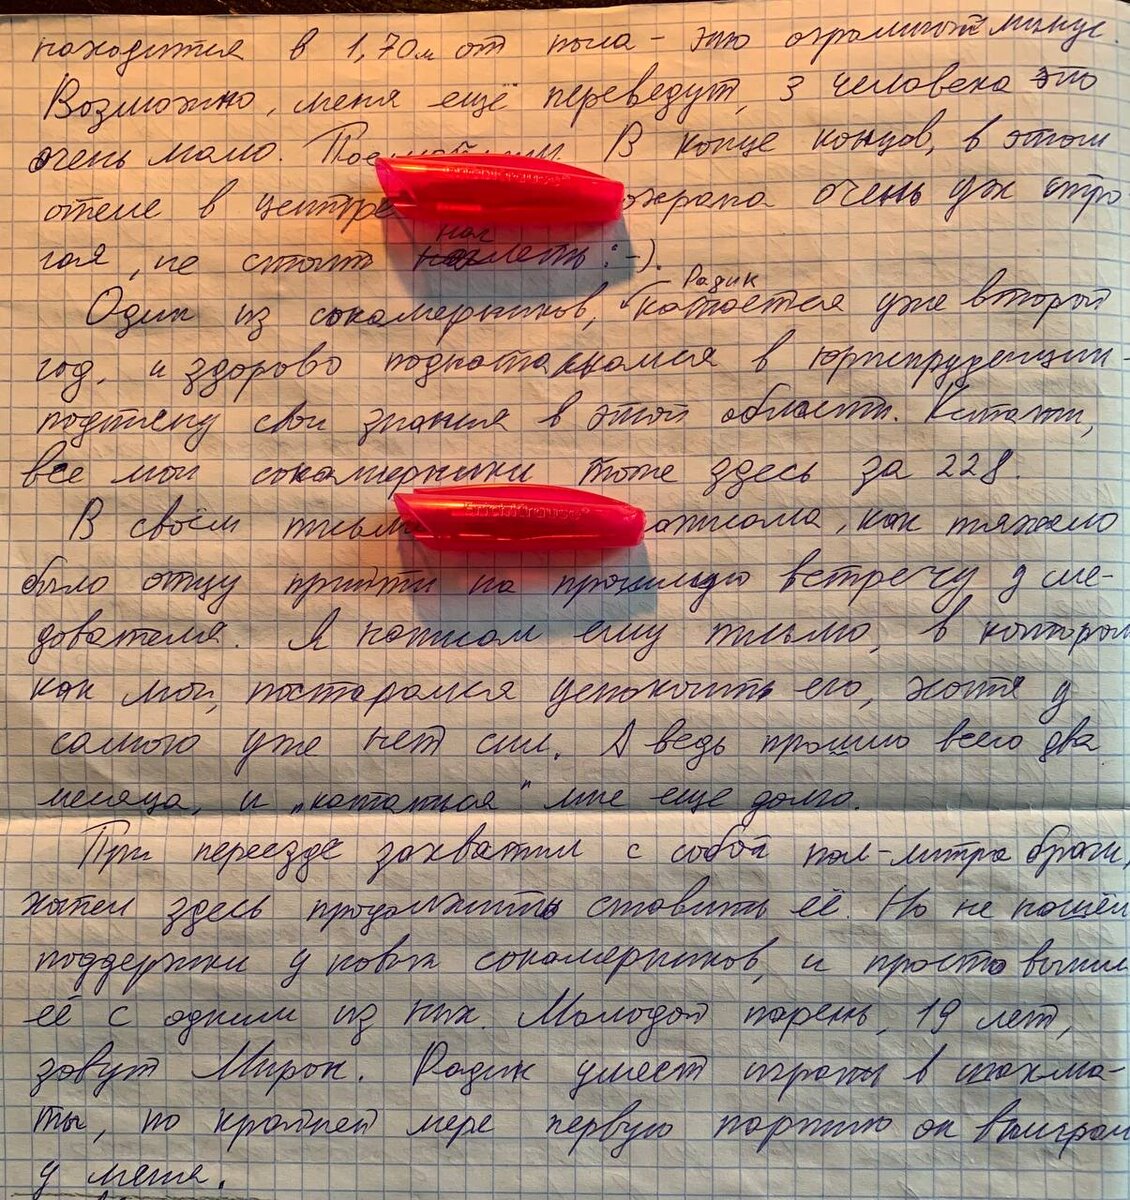 находится в 1,70м от пола - это огромный минус.
Возможно, меня ещё переведут, 3 человека это
очень мало. В конце концов, в этом
отеле в центре охрана очень уж стро-
гая, не стоит :-).
Один из сокамерников, Радик катается уже второй
год, и здорово поднатаскался в юриспруденции -
подтяну свои знания в этой области. Кстати,
все мои сокамерники тоже здесь за 228.
В своём написала, как тяжело
было отцу прийти на прошлую встречу у сле-
дователя. Я написал ему письмо, в котором
как мог, постарался успокоить его, хотя у
самого уже нет сил. А ведь прошло всего два
месяца, и „кататься" мне еще долго.
При переезде захватил с собой пол-литра браги,
хотел здесь продолжить ставить её. Но не нашёл
поддержки у новых сокамерников, и просто выпил
её с одним из них. Молодой парень, 19 лет,
зовут Мирон. Радик умеет играть в шахма-
ты, по крайней мере первую партию он выиграл
у меня.